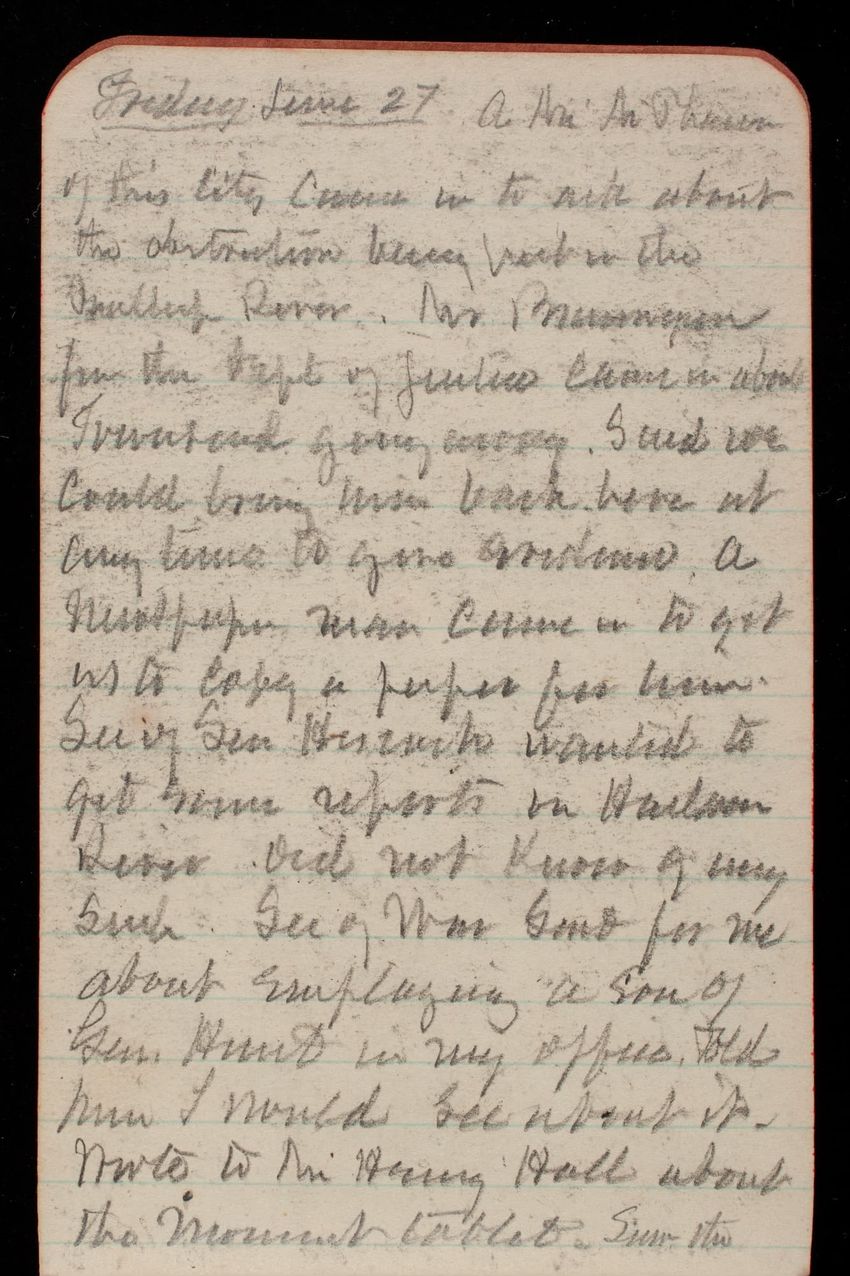 Friday June 27 A Mr
of this city came in to ask about
the obstruction being put in the
River. Mr
from the Dept of Justice came in about
Townsend going away. Said we
could bring him back here at
any time to give evidence. A
Newspaper man came in to get
us to copy a paper for him.
Sec of Sen Hiscock wanted to
get some reports on Harlem
River. Did not know of any
such. Sec of War Send for me
about employing a son of
Gen. Hunt in my office. Told
him I would see about it.
Wrote to Mr Henry Hall about
the Monument tablet. Saw the